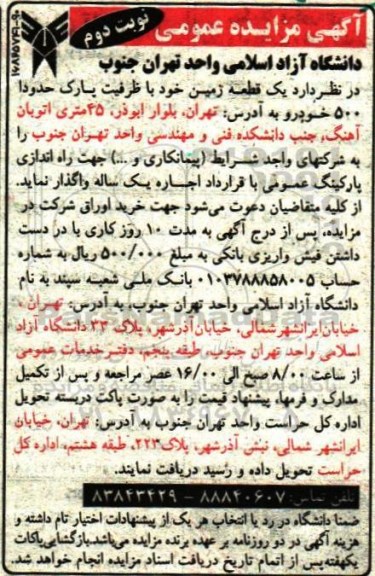 آگهی مزایده عمومی
نوبت دوم
دانشگاه آزاد اسلامی واحد تهران جنوب
در نظر دارد یک قطعه زمین خود با ظرفیت پارک حدودا
۵۰۰ خودرو به آدرس: تهران، بلوار ابوذر، ۴۵متری اتوبان
آهنگ، جنب دانشکده فنی و مهندسی واحد تهران جنوب را
به شرکتهای واجد شرایط (پیمانکاری و ...) جهت راه اندازی
پارکینگ عمومی با قرارداد اجاره یک ساله واگذار نماید.
از کلیه متقاضیان دعوت می‌شود جهت خرید اوراق شرکت در
مزایده، پس از درج آگهی به مدت ۱۰ روز کاری با در دست
داشتن فیش واریزی بانکی به مبلغ ۵۰۰/۰۰۰ ریال به شماره
حساب ۰۱۰۳۷۸۸۸۵۸۰۰۵ بانک ملی شعبه سپند به نام
دانشگاه آزاد اسلامی واحد تهران جنوب به آدرس: تهران -
خیابان ایرانشهر شمالی، خیابان آذرشهر، پلاک ۳۳ دانشگاه آزاد
اسلامی واحد تهران جنوب، طبقه پنجم، دفتر خدمات عمومی
از ساعت ۸/۰۰ صبح الی ۱۶/۰۰ عصر مراجعه و پس از تکمیل
مدارک و فرمها، پیشنهاد قیمت را به صورت پاکت دربسته تحویل
اداره کل حراست واحد تهران جنوب به آدرس: تهران، خیابان
ایرانشهر شمالی، نبش آذرشهر، پلاک۲۲۳، طبقه هشتم، اداره کل
حراست تحویل داده و رسید دریافت نمایند.
تلفن تماس: ۸۸۸۴۰۶۰۷ - ۸۳۸۴۳۴۲۹
ضمنا دانشگاه در رد یا انتخاب هر یک از پیشنهادات اختیار تام داشته و
هزینه آگهی در دو روزنامه بر عهده برنده مزایده می‌باشد.بازگشایی پاکات
یکهفته پس از اتمام تاریخ دریافت اسناد مزایده انجام خواهد شد.